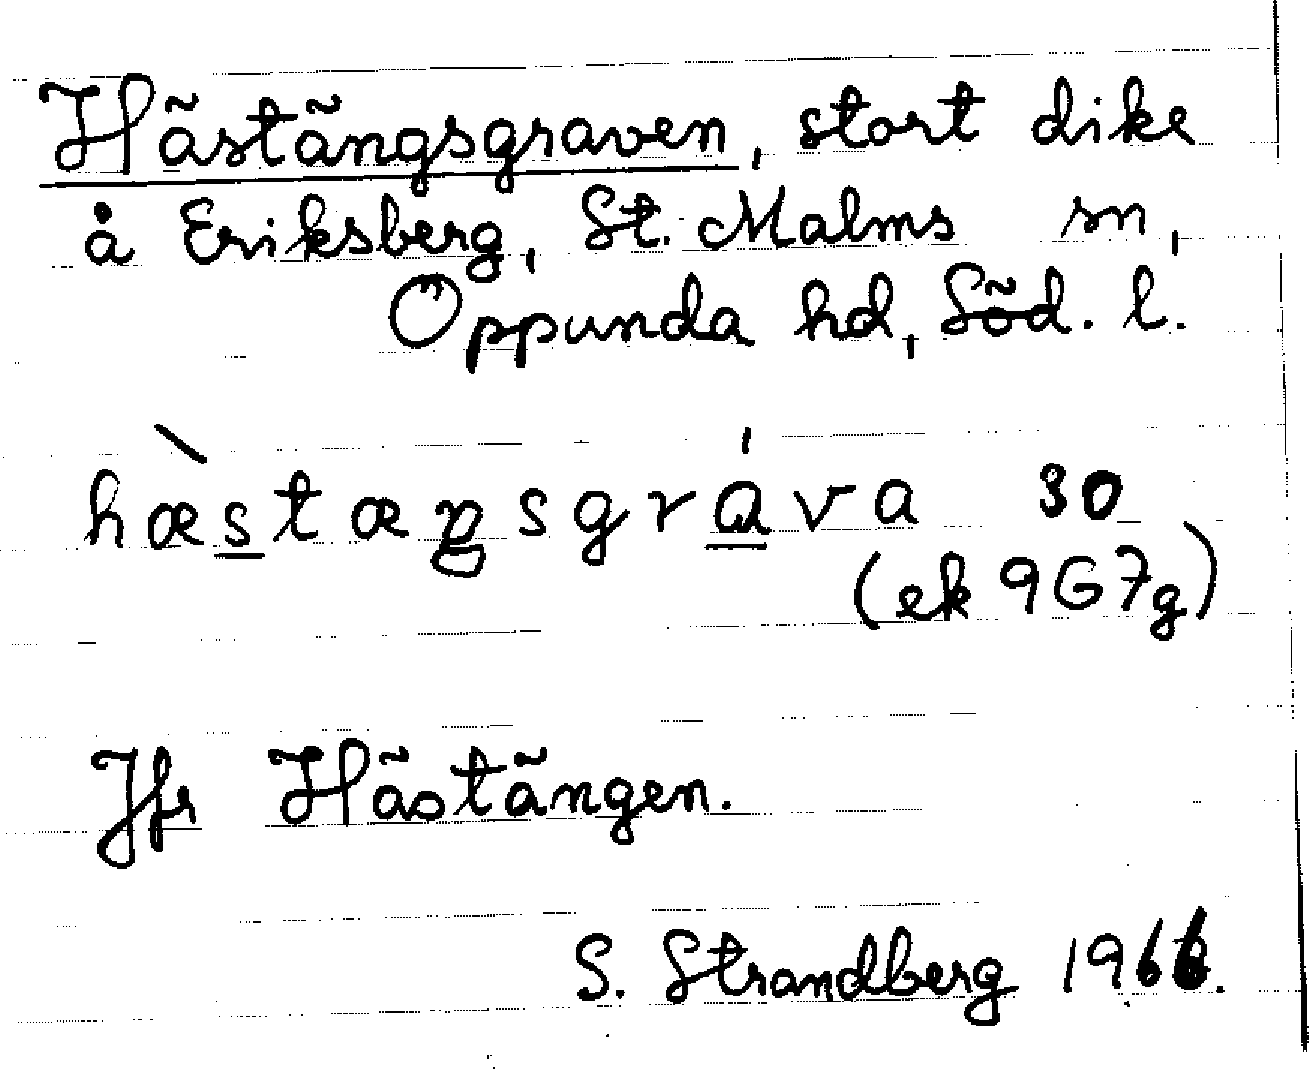 Hästängsgraven, stort dike
å Eriksberg, St. Malms sn,
Oppunda hd, Söd. l.
hæ̀stæŋsgráva 30
(ek 9G7g)
Jfr Hästängen.
S. Strandberg 1966.